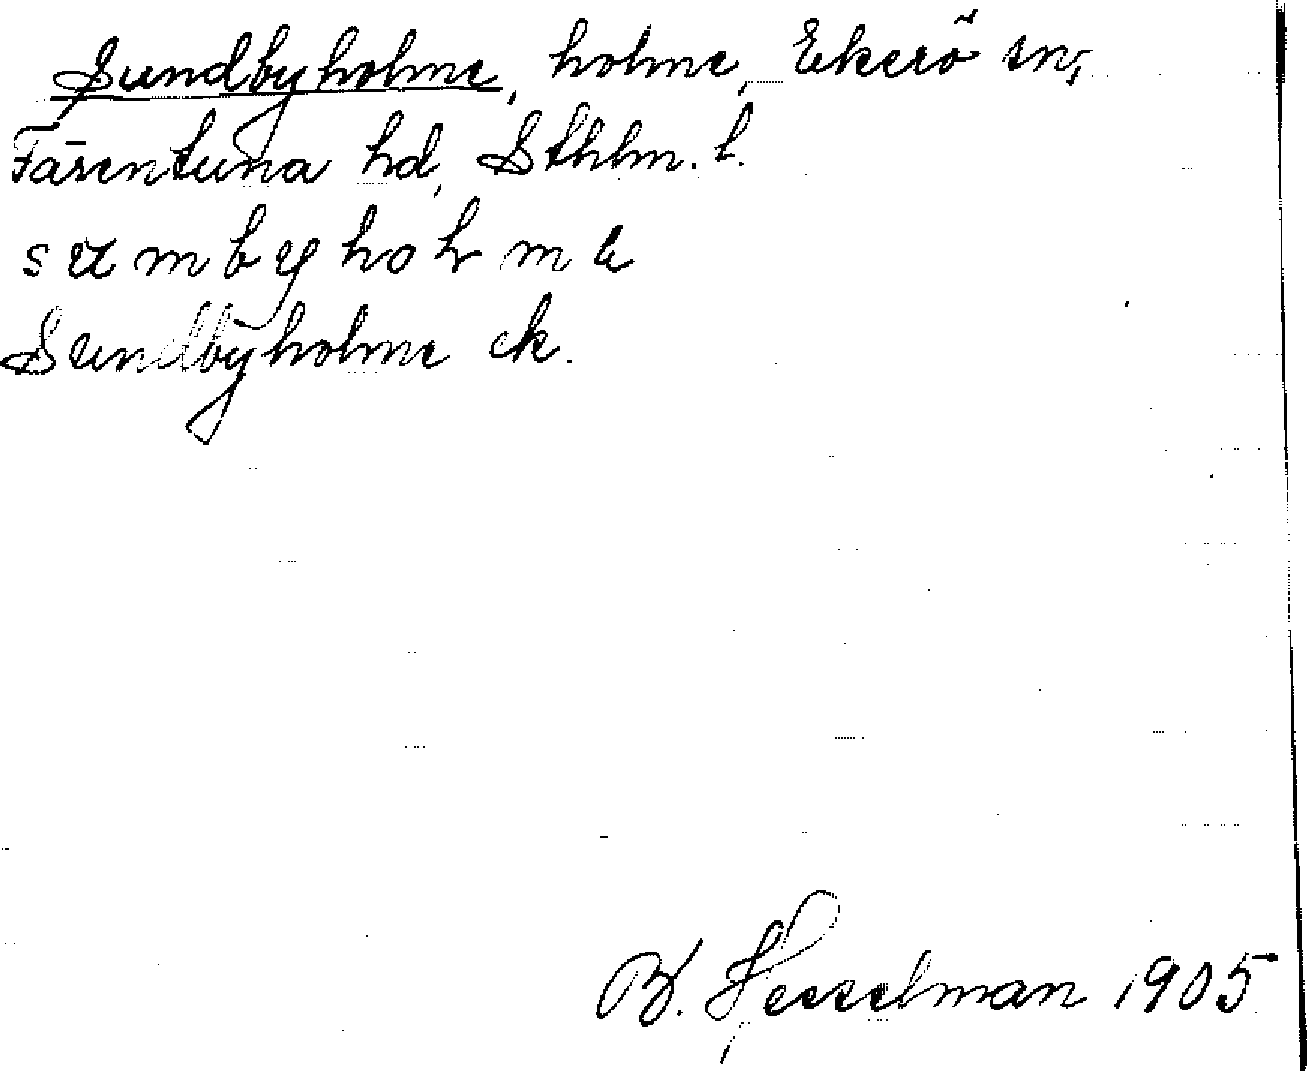 Sundbyholme, holme, Ekerö sn,
Färentuna hd, Sthlm. l.
Sundbyholme ek.
B. Hesselman 1905